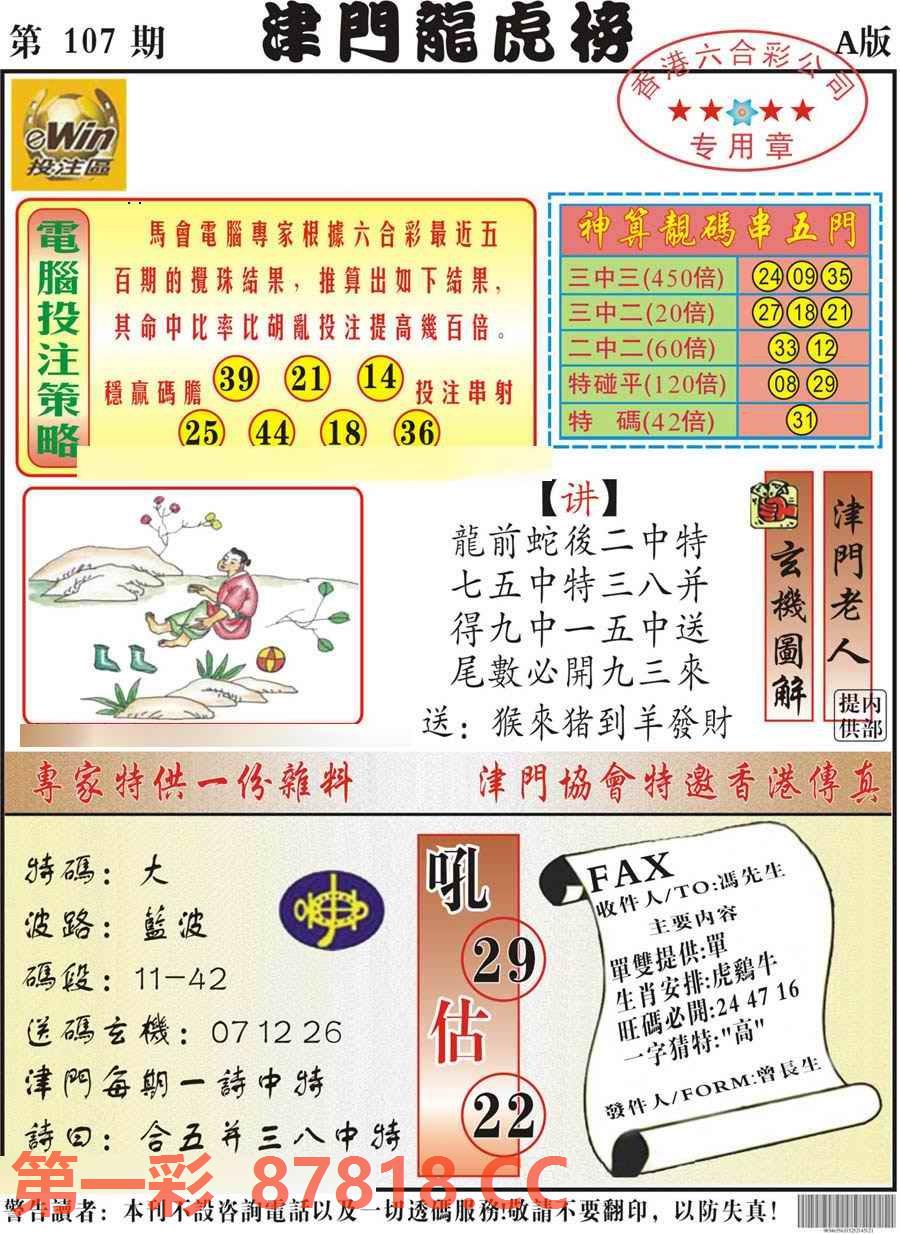 第 107 期
津門龍虎榜
A版
香港六合彩公司
专用章
eWin
投注區
電腦投注策略
馬會電腦專家根據六合彩最近五
百期的攪珠結果，推算出如下結果，
其命中比率比胡亂投注提高幾百倍。
穩贏碼膽 39 21 14 投注串射
25 44 18 36
神算靚碼串五門
三中三(450倍) 24 09 35
三中二(20倍) 27 18 21
二中二(60倍) 33 12
特碰平(120倍) 08 29
特 碼(42倍) 31
【讲】
龍前蛇後二中特
七五中特三八并
得九中一五中送
尾數必開九三來
送：猴來猪到羊發財
玄機圖解
津門老人
内部提供
專家特供一份雜料
津門協會特邀香港傳真
特碼：大
波路：藍波
碼段：11-42
送碼玄機：07 12 26
津門每期一詩中特
詩曰：合五并三八中特
吼
29
估
22
FAX
收件人/TO:馮先生
主要内容
單雙提供:單
生肖安排:虎鷄牛
旺碼必開:24 47 16
一字猜特:"高"
發件人/FORM:曾長生
第一彩 87818.CC
警告讀者：本刊不設咨詢電話以及一切透碼服務!敬請不要翻印，以防失真!